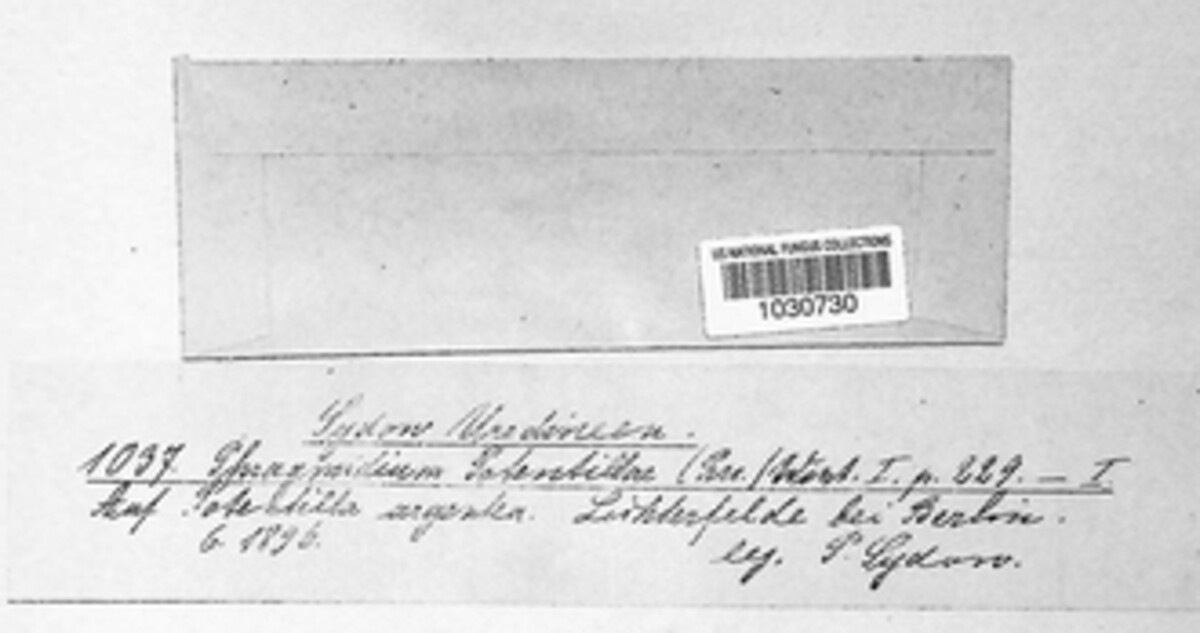 US NATIONAL FUNGUS COLLECTIONS
1030730
Sydow Uredineen.
1037. Phragmidium Potentillae (Pers.) Wint. I. p. 229. — I.
Auf Potentilla argentea. Lichterfelde bei Berlin.
6. 1896.
leg. P. Sydow.